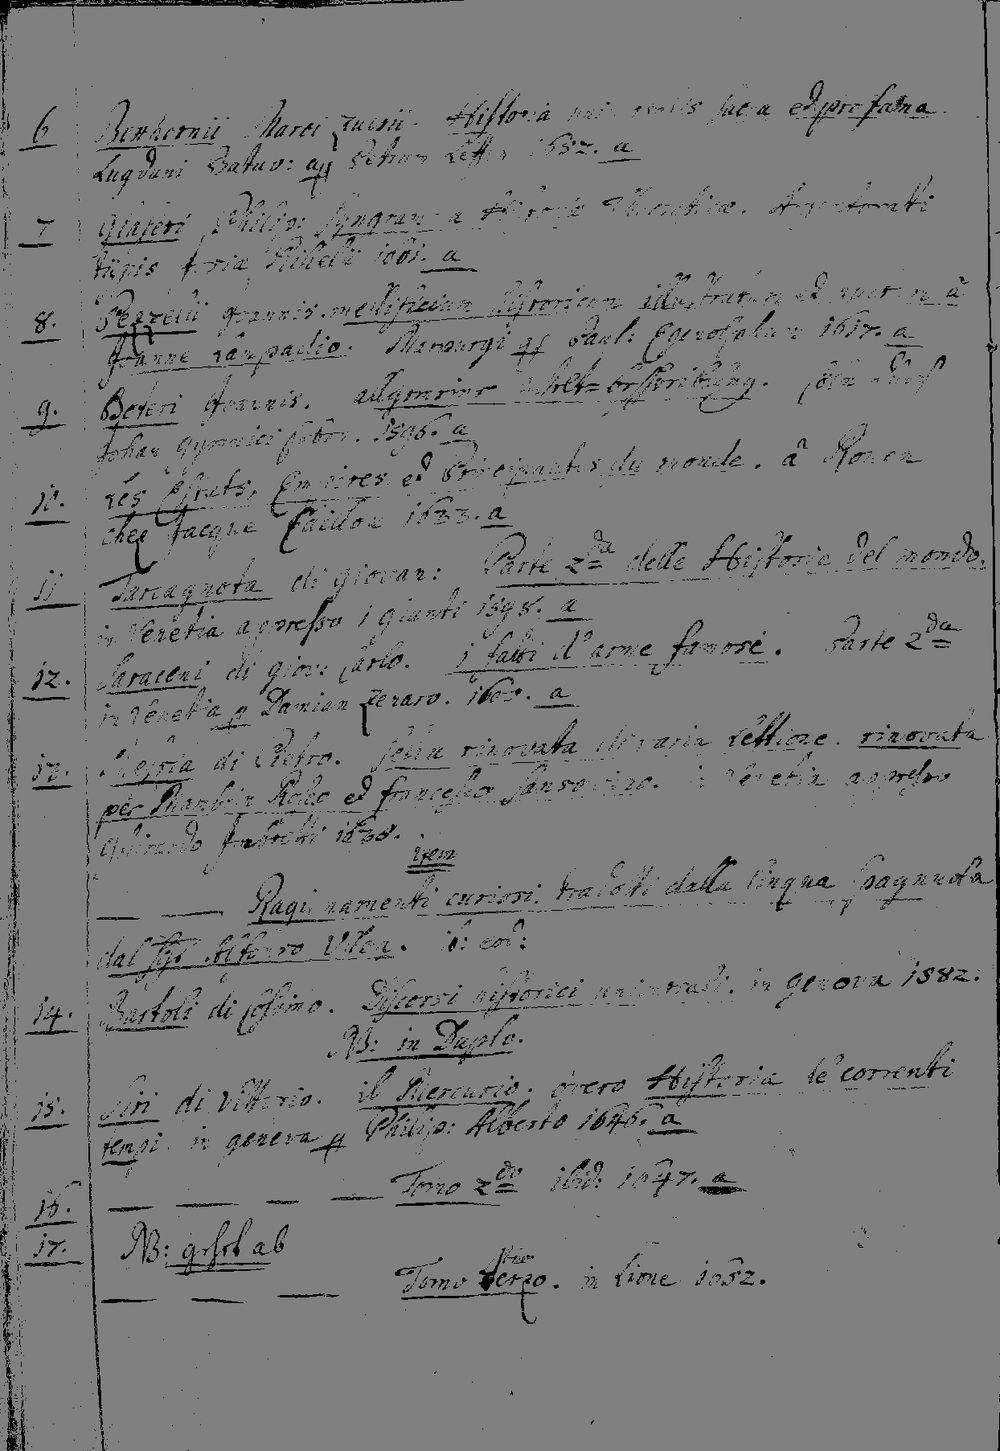 6 Boxhornii Marci Zuerii. Historia universalis sacra et profana.
Lugduni Batav: apud Petrum Leffen 1652. a
7 Glaseri Philip: Syngramma Historiae Theoreticae. Argentorati
typis 1601. a
8. Pezelii Joannis. mellificium historicum illustratum et auctum à
Joanne Lampadio. Marpurgi Paul: Egenolphum 1617. a
9. Boteri Joannis. allgemeine
Johan Gymnici 1596. a
10. Lés Estats, Empires et Principautés du monde. à Rouen
chez Jacque Cailloue 1633. a
11 Tarcagnota di giovan: Parte 2da delle Historie del mondo.
in Venetia appresso i giunti 1598. a
12. Saraceni di giov: Carlo. i fatti d'arme famosi. Parte 2da
in Venetia Damian Zenaro. 1600. a
13. Messia di Pietro. Selva rinovata di varia Lettione. rinovata
per Mambrin Roseo et francesco Sansovino. in Venetia appresso
Ghirardo Imberti 1638.
Item
Ragionamenti curiosi. tradotti dalla lingua spagnuola
dal Sgr Alfonso Ulloa. ib: eod:
14. Bartoli di Cosimo. Discorsi historici universali. in Genova 1582.
NB: in Duplo.
15. Siri di Vittorio. il Mercurio. overo Historia de correnti
tempi. in geneva Philip: Alberto 1646. a
16. Tomo 2do ibid: 1647. a
17. NB: gehet ab
Tomo terzo. in Lione 1652.